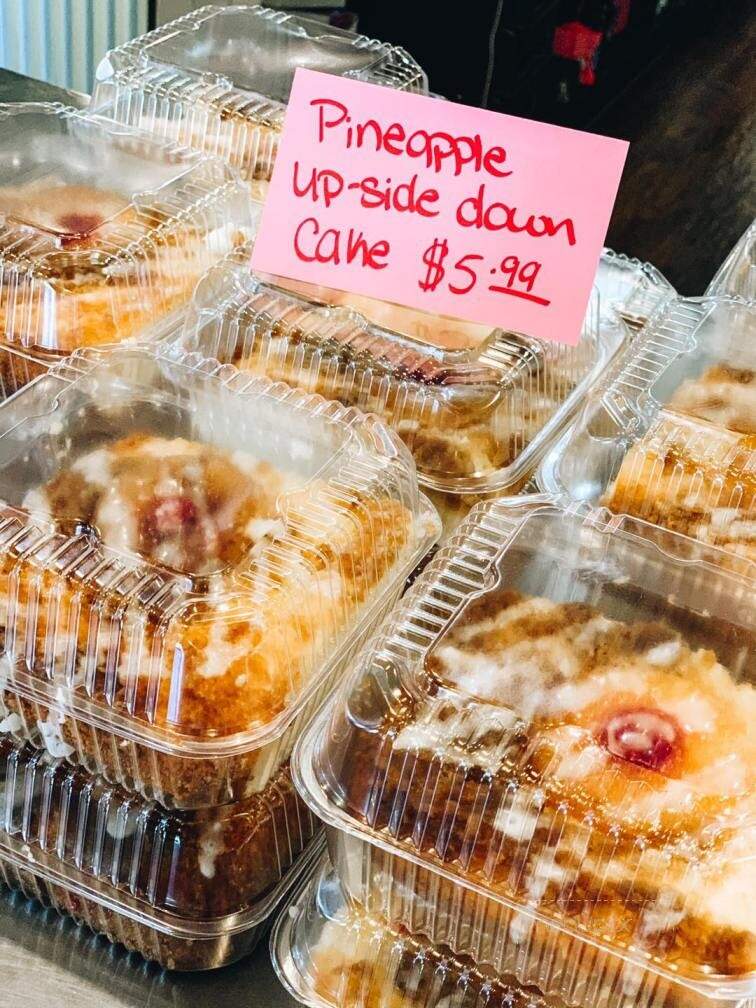 Pineapple
up-side down
Cake $5.99